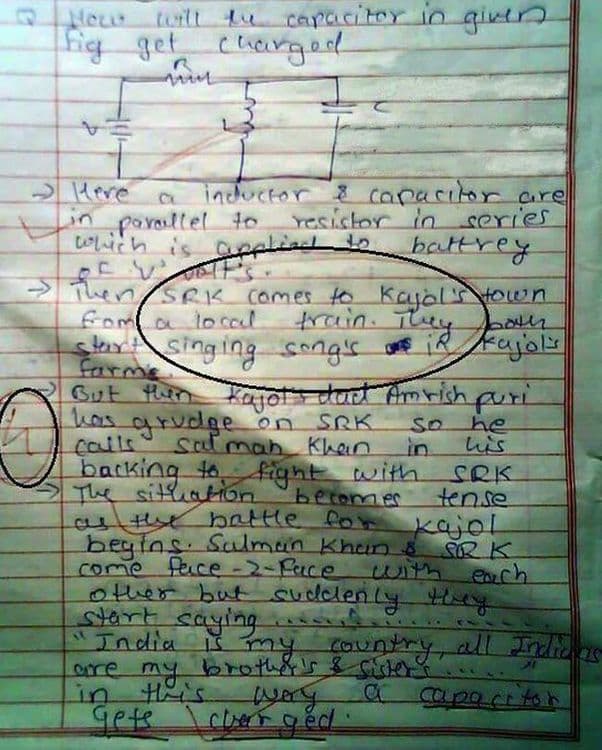 Q How will the capacitor in given
fig get charged
R
V
L
C
→ Here a inductor & capacitor are
in parallel to resistor in series
which is applied to battrey
of 'V' volt's.
→ Then SRK comes to Kajol's town
from a local train. They both
start singing song's in Kajol's
farms.
→ But then Kajol's dad Amrish puri
has grudge on SRK so he
calls Salman Khan in his
backing to fight with SRK
→ The situation becomes tense
as the battle for Kajol
begins. Salman Khan & SRK
come face-2-face with each
other but suddenly they
start saying ..................
"India is my country, all Indians
are my brother's & sister's ......"
in this way a capacitor
Gets charged.